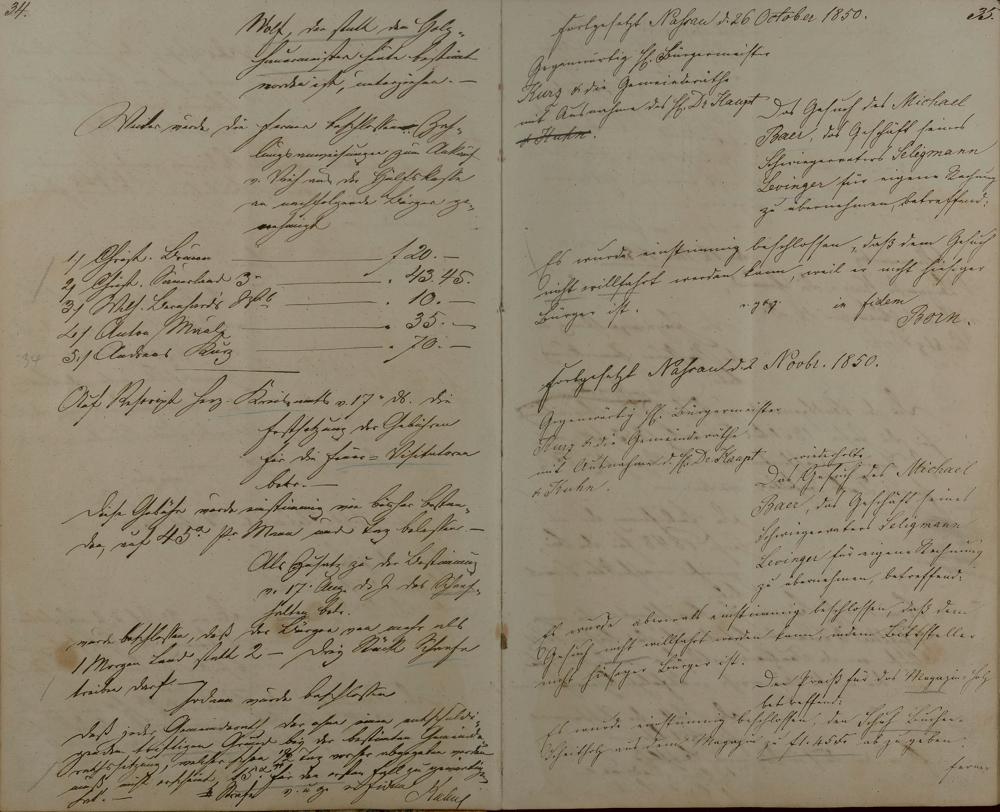 34.
Wolf, der statt des Holz-
hauermeisters heute bestimmt
worden ist, unterziehen. —
Weiter wurde die ferner beschlossene Zah-
lungsanweisungen zum Ankauf
v. Vieh aus der Hülfskasse
an nachfolgende Bürger ge-
nehmigt
1/ Christ. f 20. —
2/ Christ. Sauerland 3r " 43. 45.
3/ Wilh. Bernhards " 10. —
4/ Anton " 35. —
5./ Andreas Kurz " 70. —
Auf Rescript Herz. Kreisamts v. 17n ds. die
Festsetzung der Gebühren
für die Feuer-Visitatoren
betr. —
Diese Gebühr wurde einstimmig wie bisher bestan-
den, auf 45 Pr Mann und Tag belassen. —
Als Zusatz zu der Bestimmung
v. 17. Aug. d. J. das Schaf-
halten betr.
wurde beschlossen, daß der Bürger von mehr als
1 Morgen Land statt 2 — drei Stück Schafe
treiben darf. —
Sodann wurde beschlossen
daß jeder Gemeinderath, der ohne einen entschuldi-
genden wichtigen Grund bei der bestimmten Gemeinde-
rathssitzung, welcher schon Tag vorher angegeben werden
muß nicht erscheint, für den ersten Fall zu gewärtigen
hat. — Strafe v. u. g. in fidem
35.
Fortgesetzt Nassau d. 26 October 1850.
Gegenwärtig H. Bürgermeister
Kurz & die Gemeinderäthe
mit Ausnahme des H. Dr. Haupt
& Kuhn.
Das Gesuch des Michael
Baer, das Geschäft seines
Schwiegervaters Seligmann
Levinger für eigene Rechnung
zu übernehmen, betreffend:
Es wurde einstimmig beschlossen, daß dem Gesuch
nicht willfahrt werden kann, weil er nicht hiesiger
Bürger ist. v. g. g. in fidem
Born.
Fortgesetzt Nassau d. 2 Novbr. 1850.
Gegenwärtig H. Bürgermeister
Kurz & die Gemeinderäthe
mit Ausnahme d. H. Dr. Haupt
& Kuhn.
wiederholte
Das Gesuch des Michael
Baer, das Geschäft seines
Schwiegervaters Seligmann
Levinger für eigene Rechnung
zu übernehmen, betreffend:
Es wurde abermals einstimmig beschlossen, daß dem
Gesuch nicht willfahrt werden kann, indem Bittsteller
nicht hiesiger Bürger ist.
Der Preiß für das Magazin-Holz
betreffend:
Es wurde einstimmig beschlossen, den Schuh Buchen-
Scheitholz aus dem Magazin zu fl. 45 Kr abzugeben.
ferner